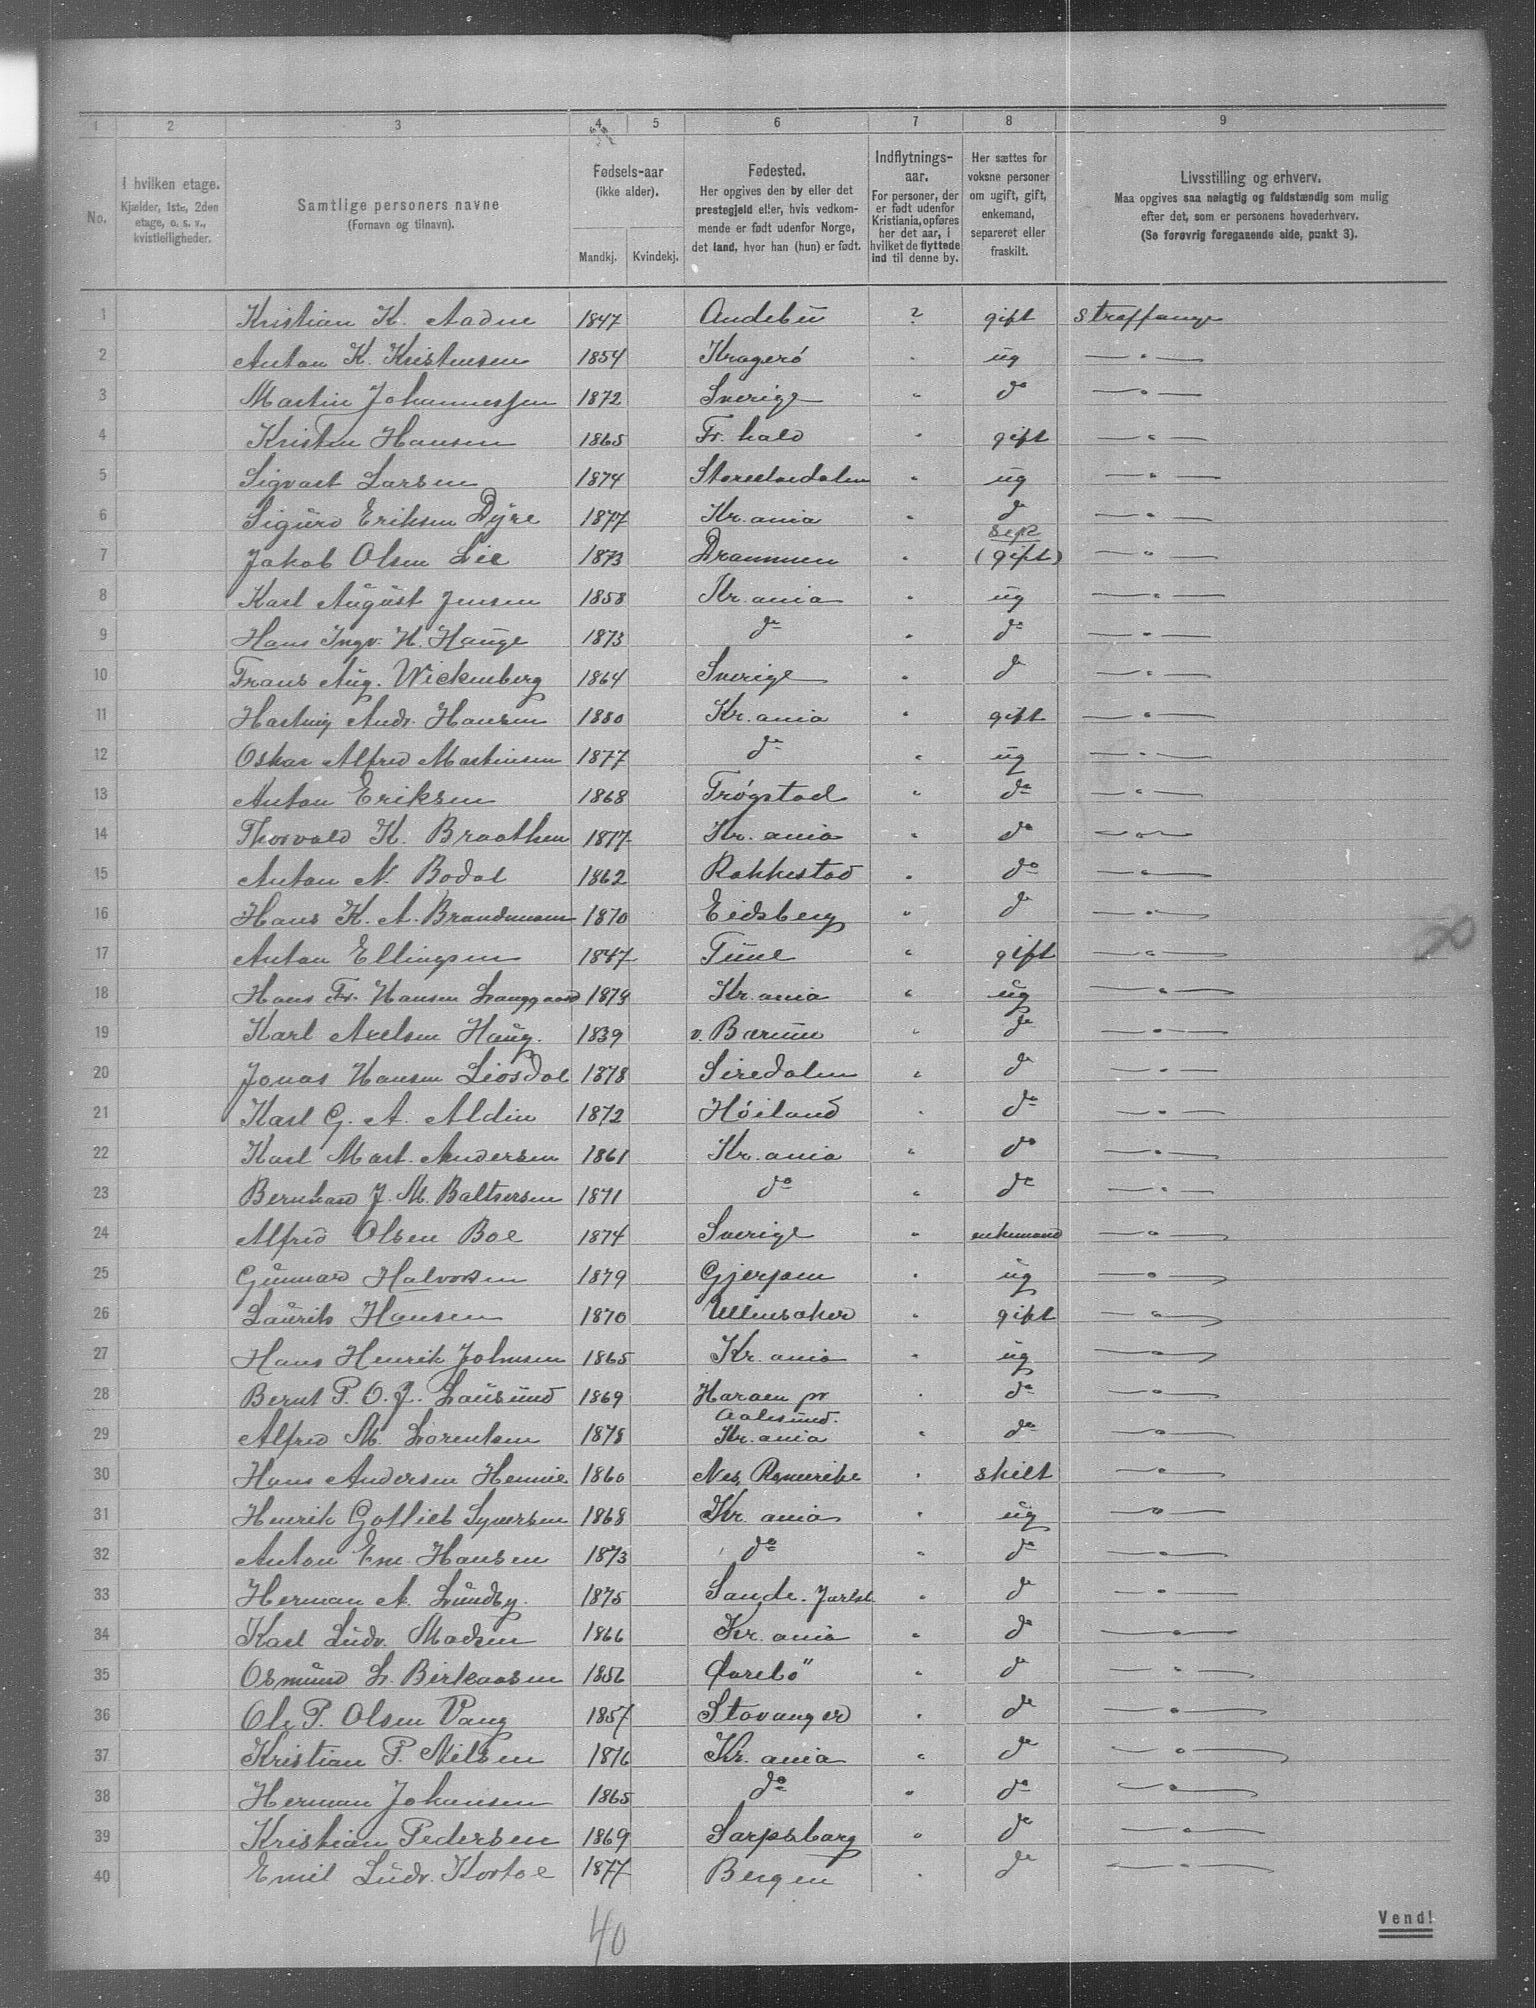 1 2 3 4 5 6 7 8 9
No.
I hvilken etage.
Kjælder, 1ste, 2den
etage, o. s. v.,
kvistleiligheder.
Samtlige personers navne
(Fornavn og tilnavn).
Fødsels-aar
(ikke alder).
Mandkj. Kvindekj.
Fødested.
Her opgives den by eller det
prestegjeld eller, hvis vedkom-
mende er født udenfor Norge,
det land, hvor han (hun) er født.
Indflytnings-
aar.
For personer, der
er født udenfor
Kristiania, opføres
her det aar, i
hvilket de flyttede
ind til denne by.
Her sættes for
voksne personer
om ugift, gift,
enkemand,
separeret eller
fraskilt.
Livsstilling og erhverv.
Maa opgives saa nøiagtig og fuldstændig som mulig
efter det, som er personens hovederhverv.
(Se forøvrig foregaaende side, punkt 3).
1 Kristian K. Aadne 1847 Andebu ? gift straffange
2 Anton K. Kristensen 1854 Kragerø " ug — " —
3 Martin Johannessen 1872 Sverige " do — " —
4 Kristen Hansen 1865 Fr. hald " gift — " —
5 Sigvart Larsen 1874 " ug — " —
6 Sigurd Eriksen Dyre 1877 Kr. ania " do — " —
sep
7 Jakob Olsen Lie 1873 Drammen " (gift) — " —
8 Karl August Jensen 1858 Kr. ania " ug — " —
9 Hans Ingv. H. Hauge 1873 do " do — " —
10 Frans Aug. Wickenberg 1864 Sverige " do — " —
11 Hartvig Andr. Hansen 1880 Kr. ania " gift — " —
12 Oskar Alfred Martinsen 1877 do " ug — " —
13 Anton Eriksen 1868 Trøgstad " do — " —
14 Thorvald K. Braathen 1877 Kr. ania " do — " —
15 Anton N. Bodal 1862 Rakkestad " do — " —
16 Hans K. A. Brandmoen 1870 Eidsberg " do — " —
17 Anton Ellingsen 1847 Tune " gift — " —
18 Hans Fr. Hansen Langgaard 1879 Kr. ania " ug — " —
19 Karl Axelsen Haug. 1839 v. Bærum " do — " —
20 Jonas Hansen Liosdal 1878 Siredalen " do — " —
21 Karl G. A. Aldin 1872 Høiland " do — " —
22 Karl Mart. Andersen 1861 Kr. ania " do — " —
23 Bernhard J. M. Baltsersen 1871 do " do — " —
24 Alfred Olsen Boe 1874 Sverige " enkemand — " —
25 Gunnard Halvorsen 1879 Gjerpen " ug — " —
26 Laurits Hansen 1870 Ullensaker " gift — " —
27 Hans Henrik Johnsen 1865 Kr. ania " ug — " —
28 Bernt P. O. J. Lausund 1869 Haraen pr " do — " —
Aalesund.
29 Alfred M. Lorentsen 1878 Kr. ania " do — " —
30 Hans Andersen Hennie 1860 Nes, Romerike " skilt — " —
31 Henrik Gotlieb Syversen 1868 Kr. ania " ug — " —
32 Anton Em. Hansen 1873 do " do — " —
33 Herman A. Lundby. 1875 Sande. Jarlsb. " do — " —
34 Karl Ludv. Madsen 1866 Kr. ania " do — " —
35 Osmund L. Birkaasen 1856 " do — " —
36 Ole P. Olsen Vang 1857 Stavanger " do — " —
37 Kristian P. Nilsen 1876 Kr. ania " do — " —
38 Herman Johansen 1865 do " do — " —
39 Kristian Pedersen 1869 Sarpsborg " do — " —
40 Emil Ludv. Kortoe 1877 Bergen " do — " —
20
40
Vend!